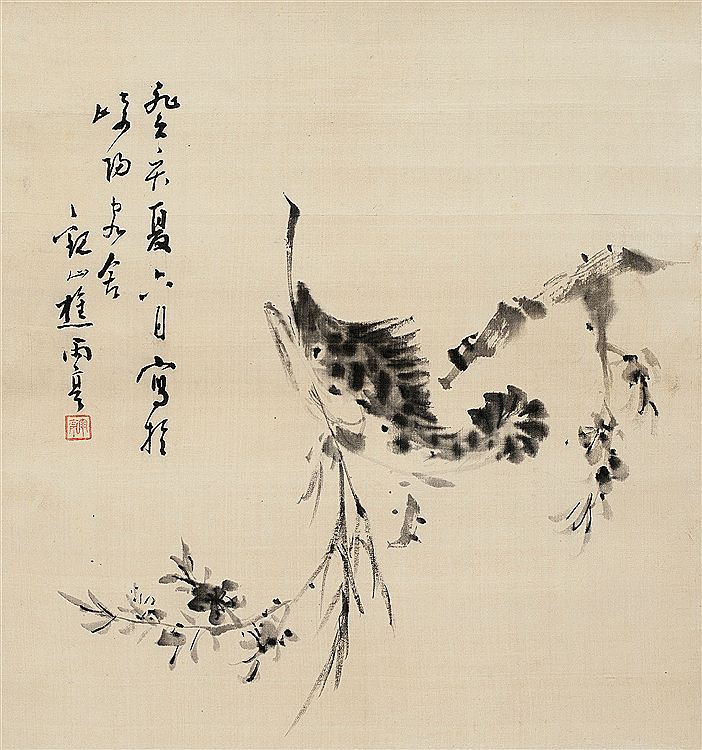 癸亥夏六月寫於
崎陽客舍
觀山樵雨亭